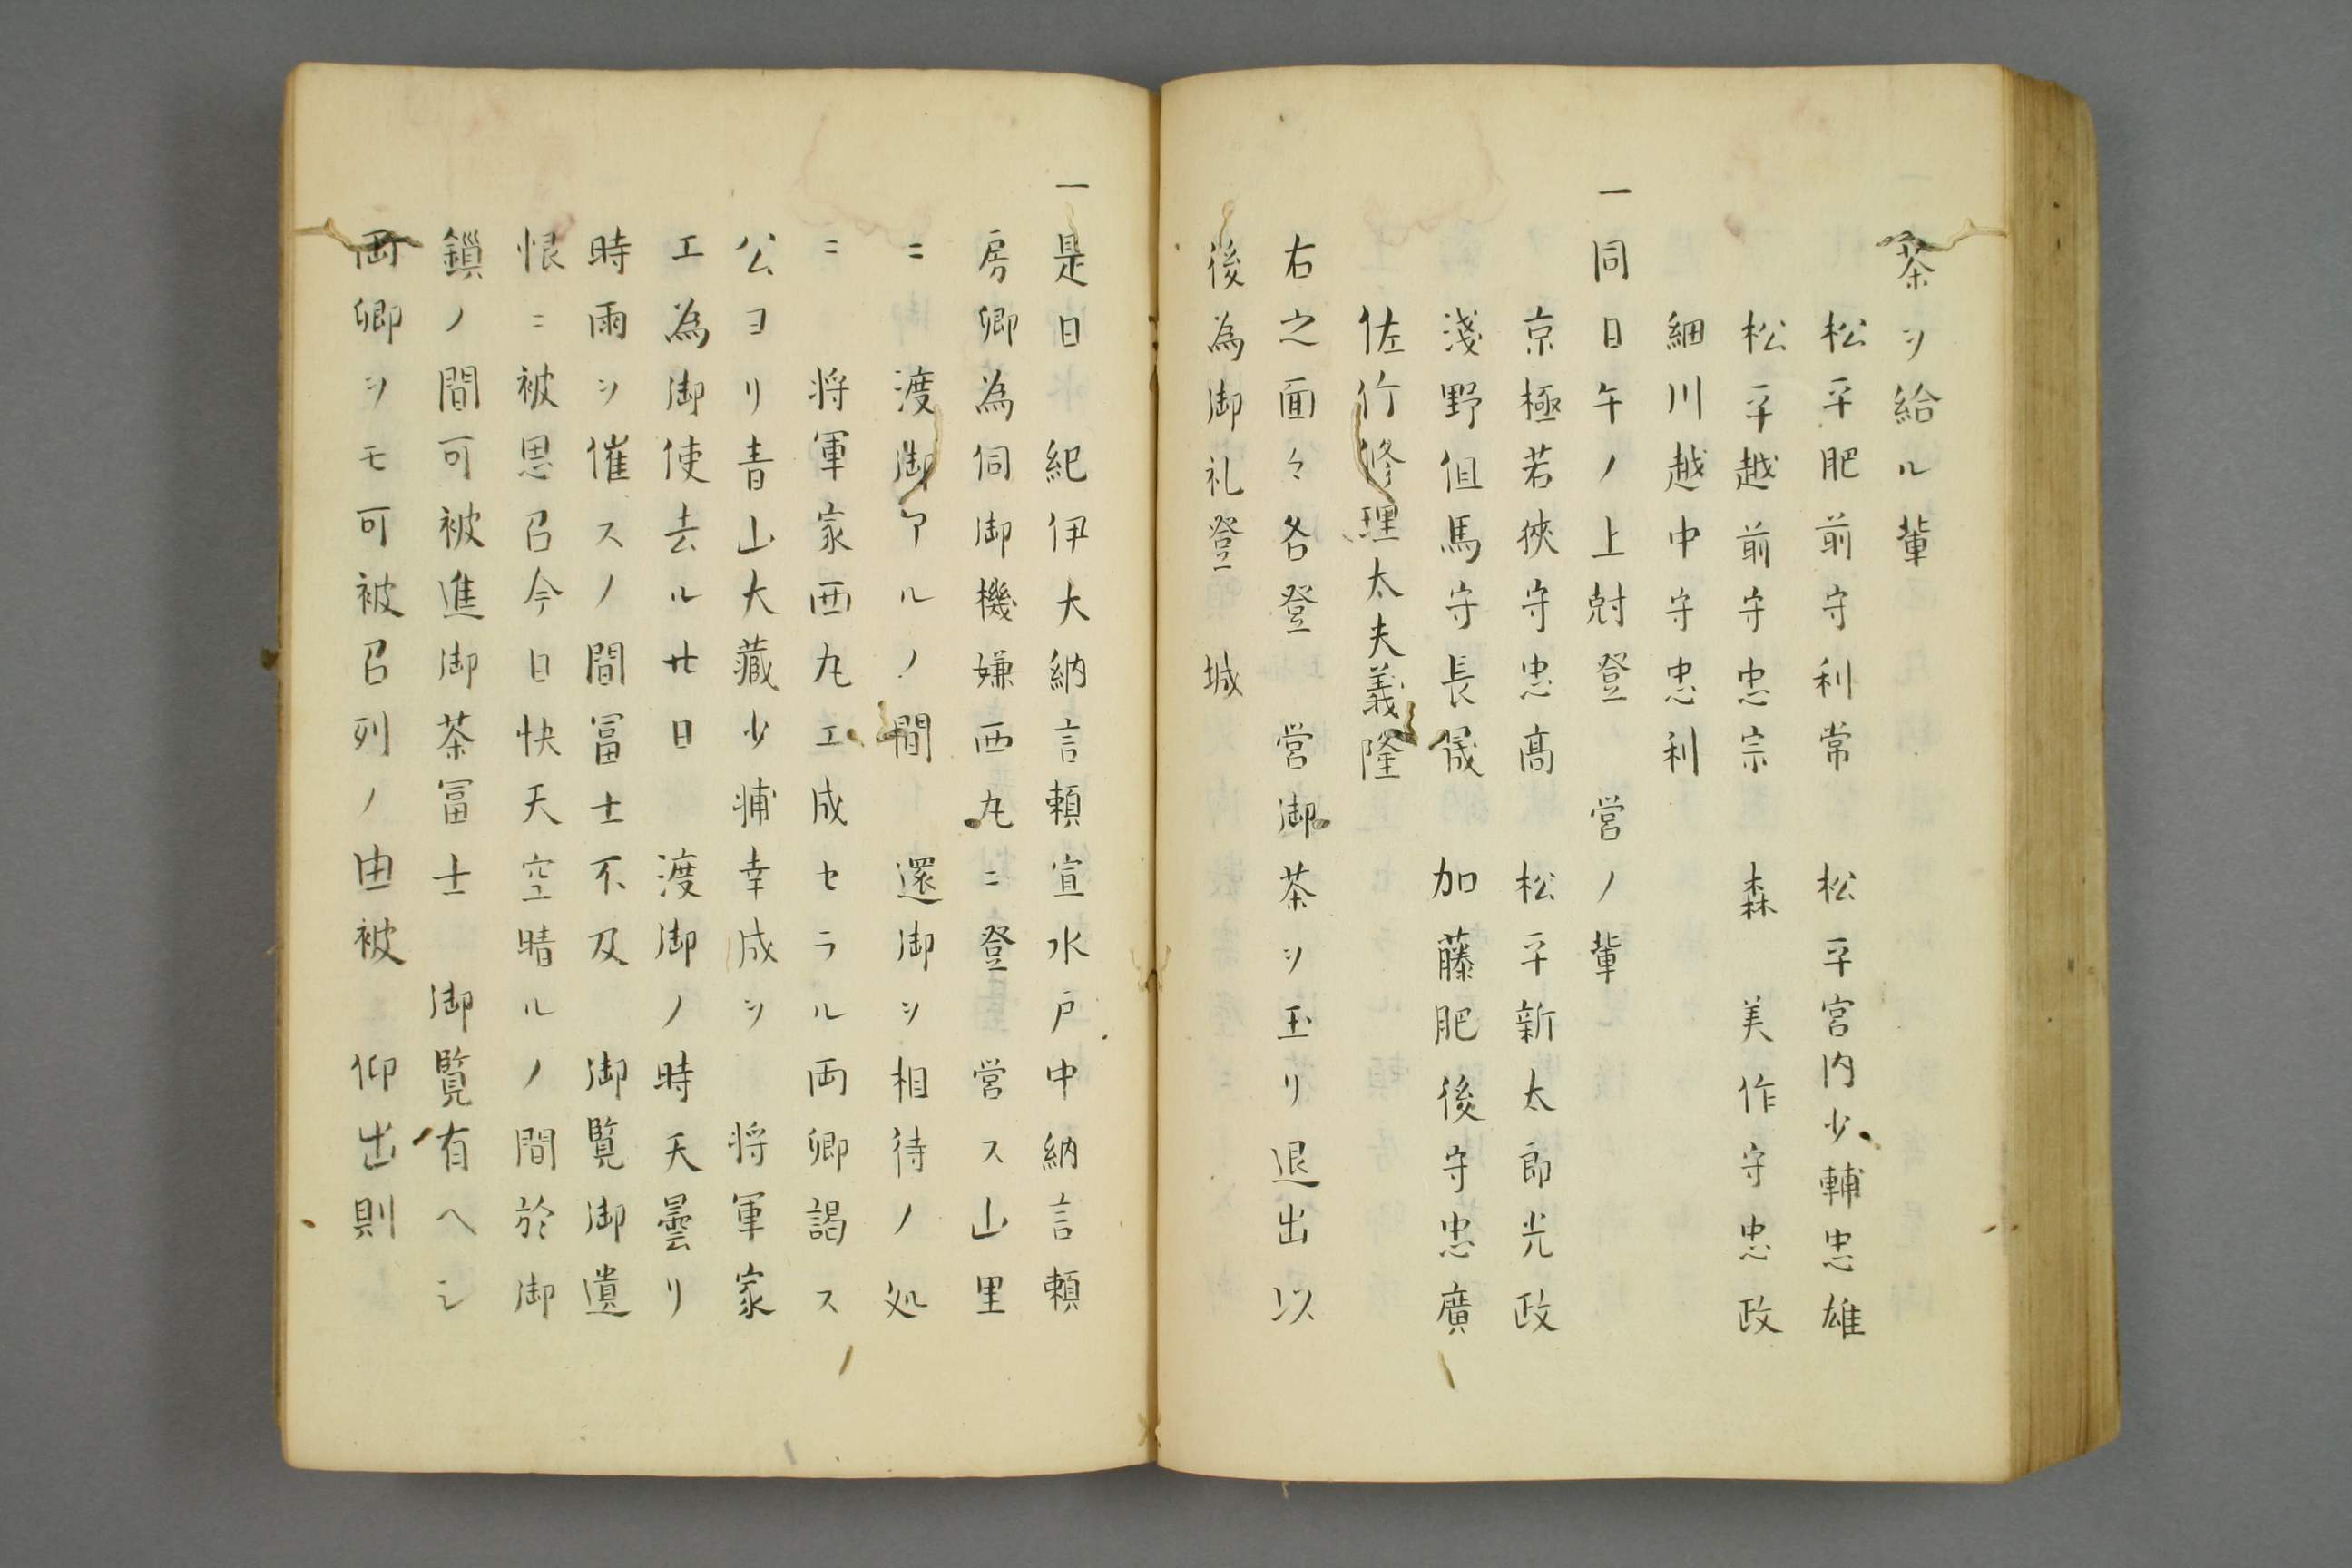 茶ヲ給ル輩
松平肥前守利常　松平宮内少輔忠雄
松平越前守忠宗　森　美作守忠政
細川越中守忠利
一同日午ノ上尅登　営ノ輩
京極若狹守忠高　松平新太郎光政
淺野但馬守長晟　加藤肥後守忠廣
佐竹修理太夫義隆
右之面々各登　営御茶ヲ玉リ退出以
後為御礼登　城
一是日　紀伊大納言頼宣水戸中納言頼
房卿為伺御機嫌西丸ニ登　営ス山里
ニ　渡御アルノ間　還御ヲ相待ノ処
ニ　将軍家西丸エ成セラル両卿謁ス
公ヨリ青山大藏少輔幸成ヲ　将軍家
エ為御使去ル廿日　渡御ノ時天曇リ
時雨ヲ催スノ間冨士不及　御覧御遺
恨ニ被思召今日快天空晴ルノ間於御
鎖ノ間可被進御茶冨士　御覧有ヘシ
両卿ヲモ可被召列ノ由被　仰出則